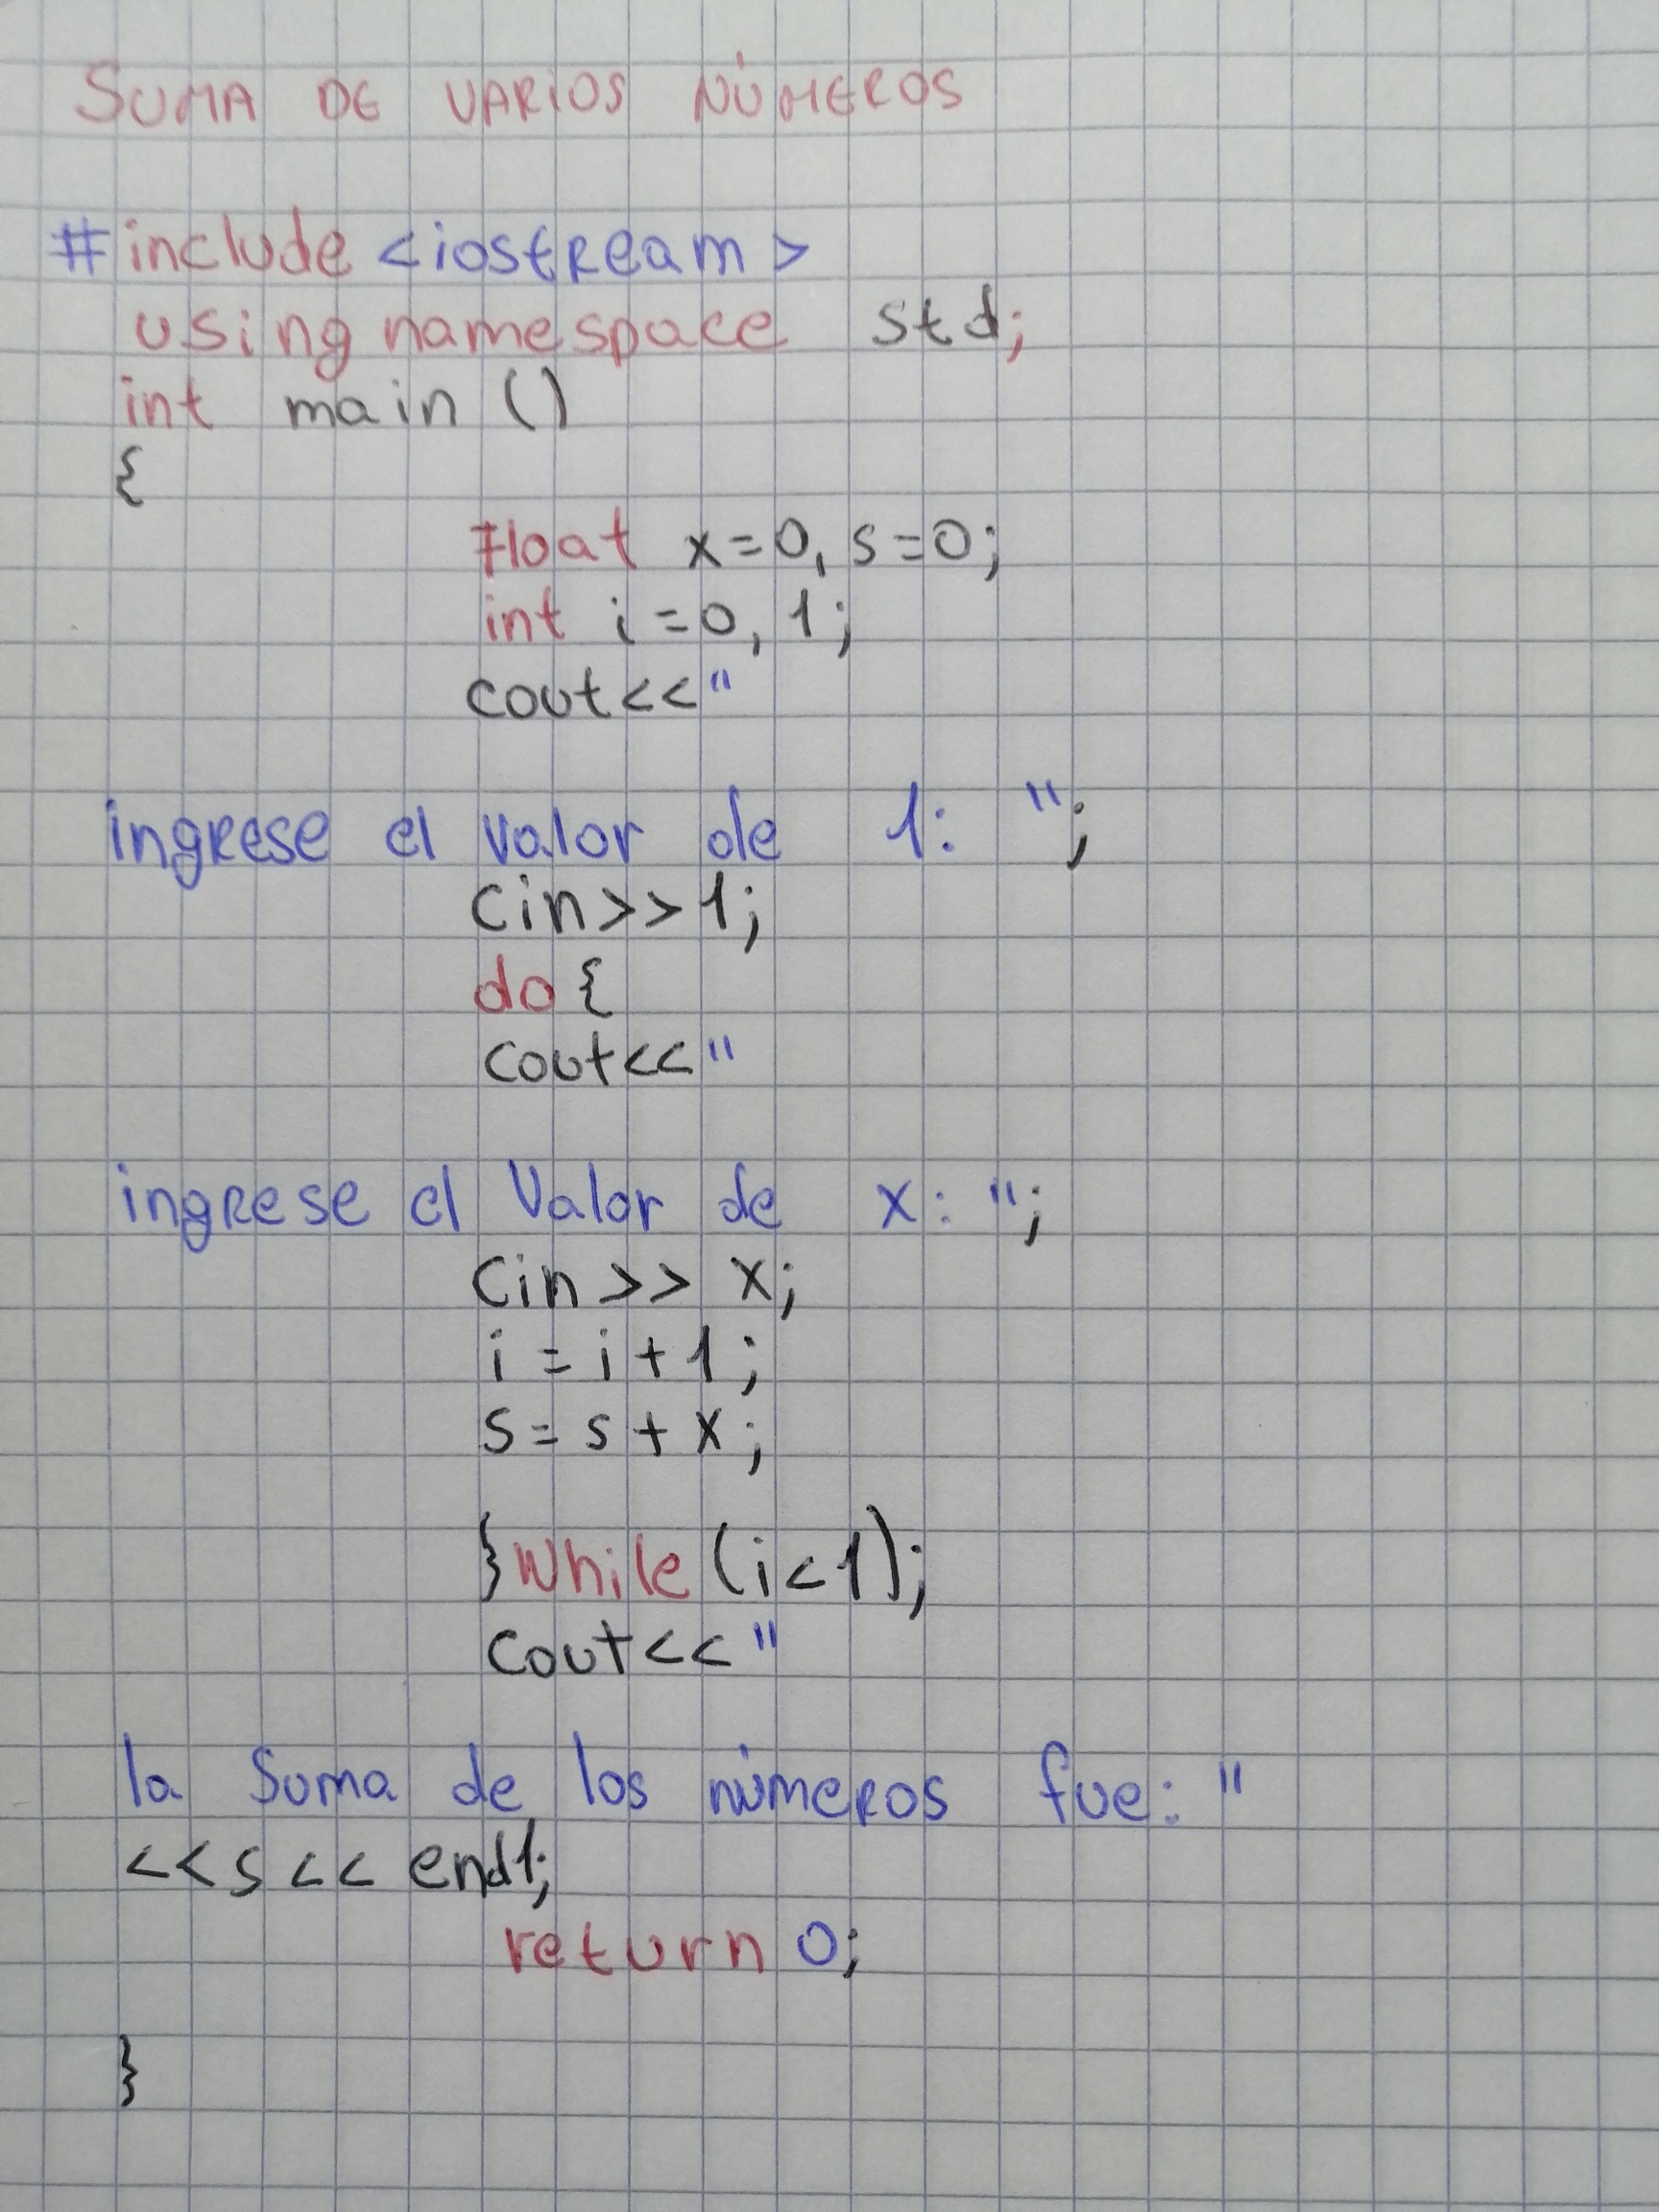 SUMA DE VARIOS NÚMEROS
#include <iostream>
using namespace std;
int main ()
{
float x=0, s=0;
int i=0, 1;
cout<<"
ingrese el valor de 1: ";
cin>>1;
do {
cout<<"
ingrese el valor de x: ";
cin>> x;
i = i+1;
s= s+x;
}while (i<1);
cout<<"
la suma de los números fue: "
<<s<< end1;
return 0;
}